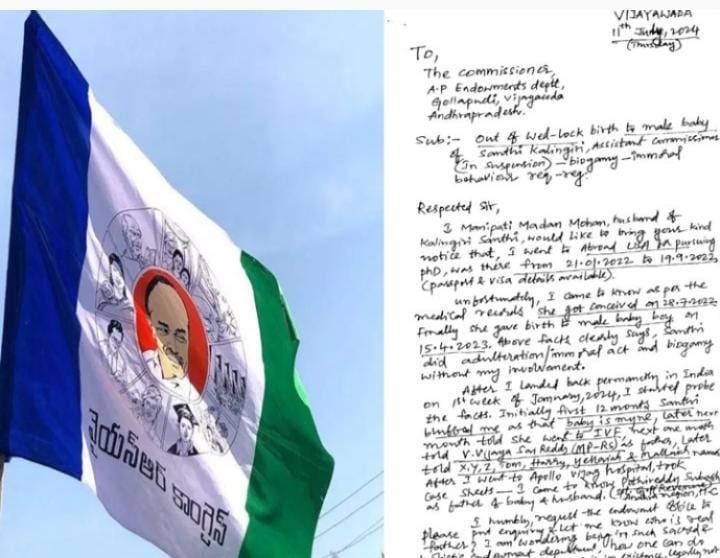 వైయస్ఆర్ కాంగ్రెస్
VIJAYAWADA
11th July, 2024
(Thursday)
To,
The commissioner,
A.P Endowments deptt,
Gollapudi, Vijayawada
Andhrapradesh.
Sub:- Out of wed-lock birth to male baby
of Santhi Kalingiri, Assistant commissioner
(In suspension) - biogamy - immoral
behaviour req - reg.
Respected Sir,
I Manipati Madan Mohan, husband of
Kalingiri Santhi, would like to bring your kind
notice that, I went to Abroad USA pursuing
phD, was there from 21.01.2022 to 19.9.2022
(passport & visa details available).
unfortunately, I came to know as per the
medical records she got conceived on 28.7.2022
Finally she gave birth to male baby boy on
15.4.2023. Above facts clearly says, Santhi
did adulteration/immoral act and biogamy
without my involvement.
After I landed back permanently in India
on 1st week of January, 2024, I started probe
the facts. Initially first 12 months Santhi
bluffed me as that baby is myne, later next
month told she went to IVF next one month
told V.Vijaya Sai Reddy (MP-RS) as father, Later
told X,Y,Z, Tom, Harry, Yellaiah & Mallaiah names
After I went to Apollo Vizag hospital, took
Case Sheets - I came to know Pothireddy Subash
as father of baby & husband.
I humbly, request the endowment office to
please put enquiry & let me know who is real
father? I am wondering being in such sacred
endowment department how one can do